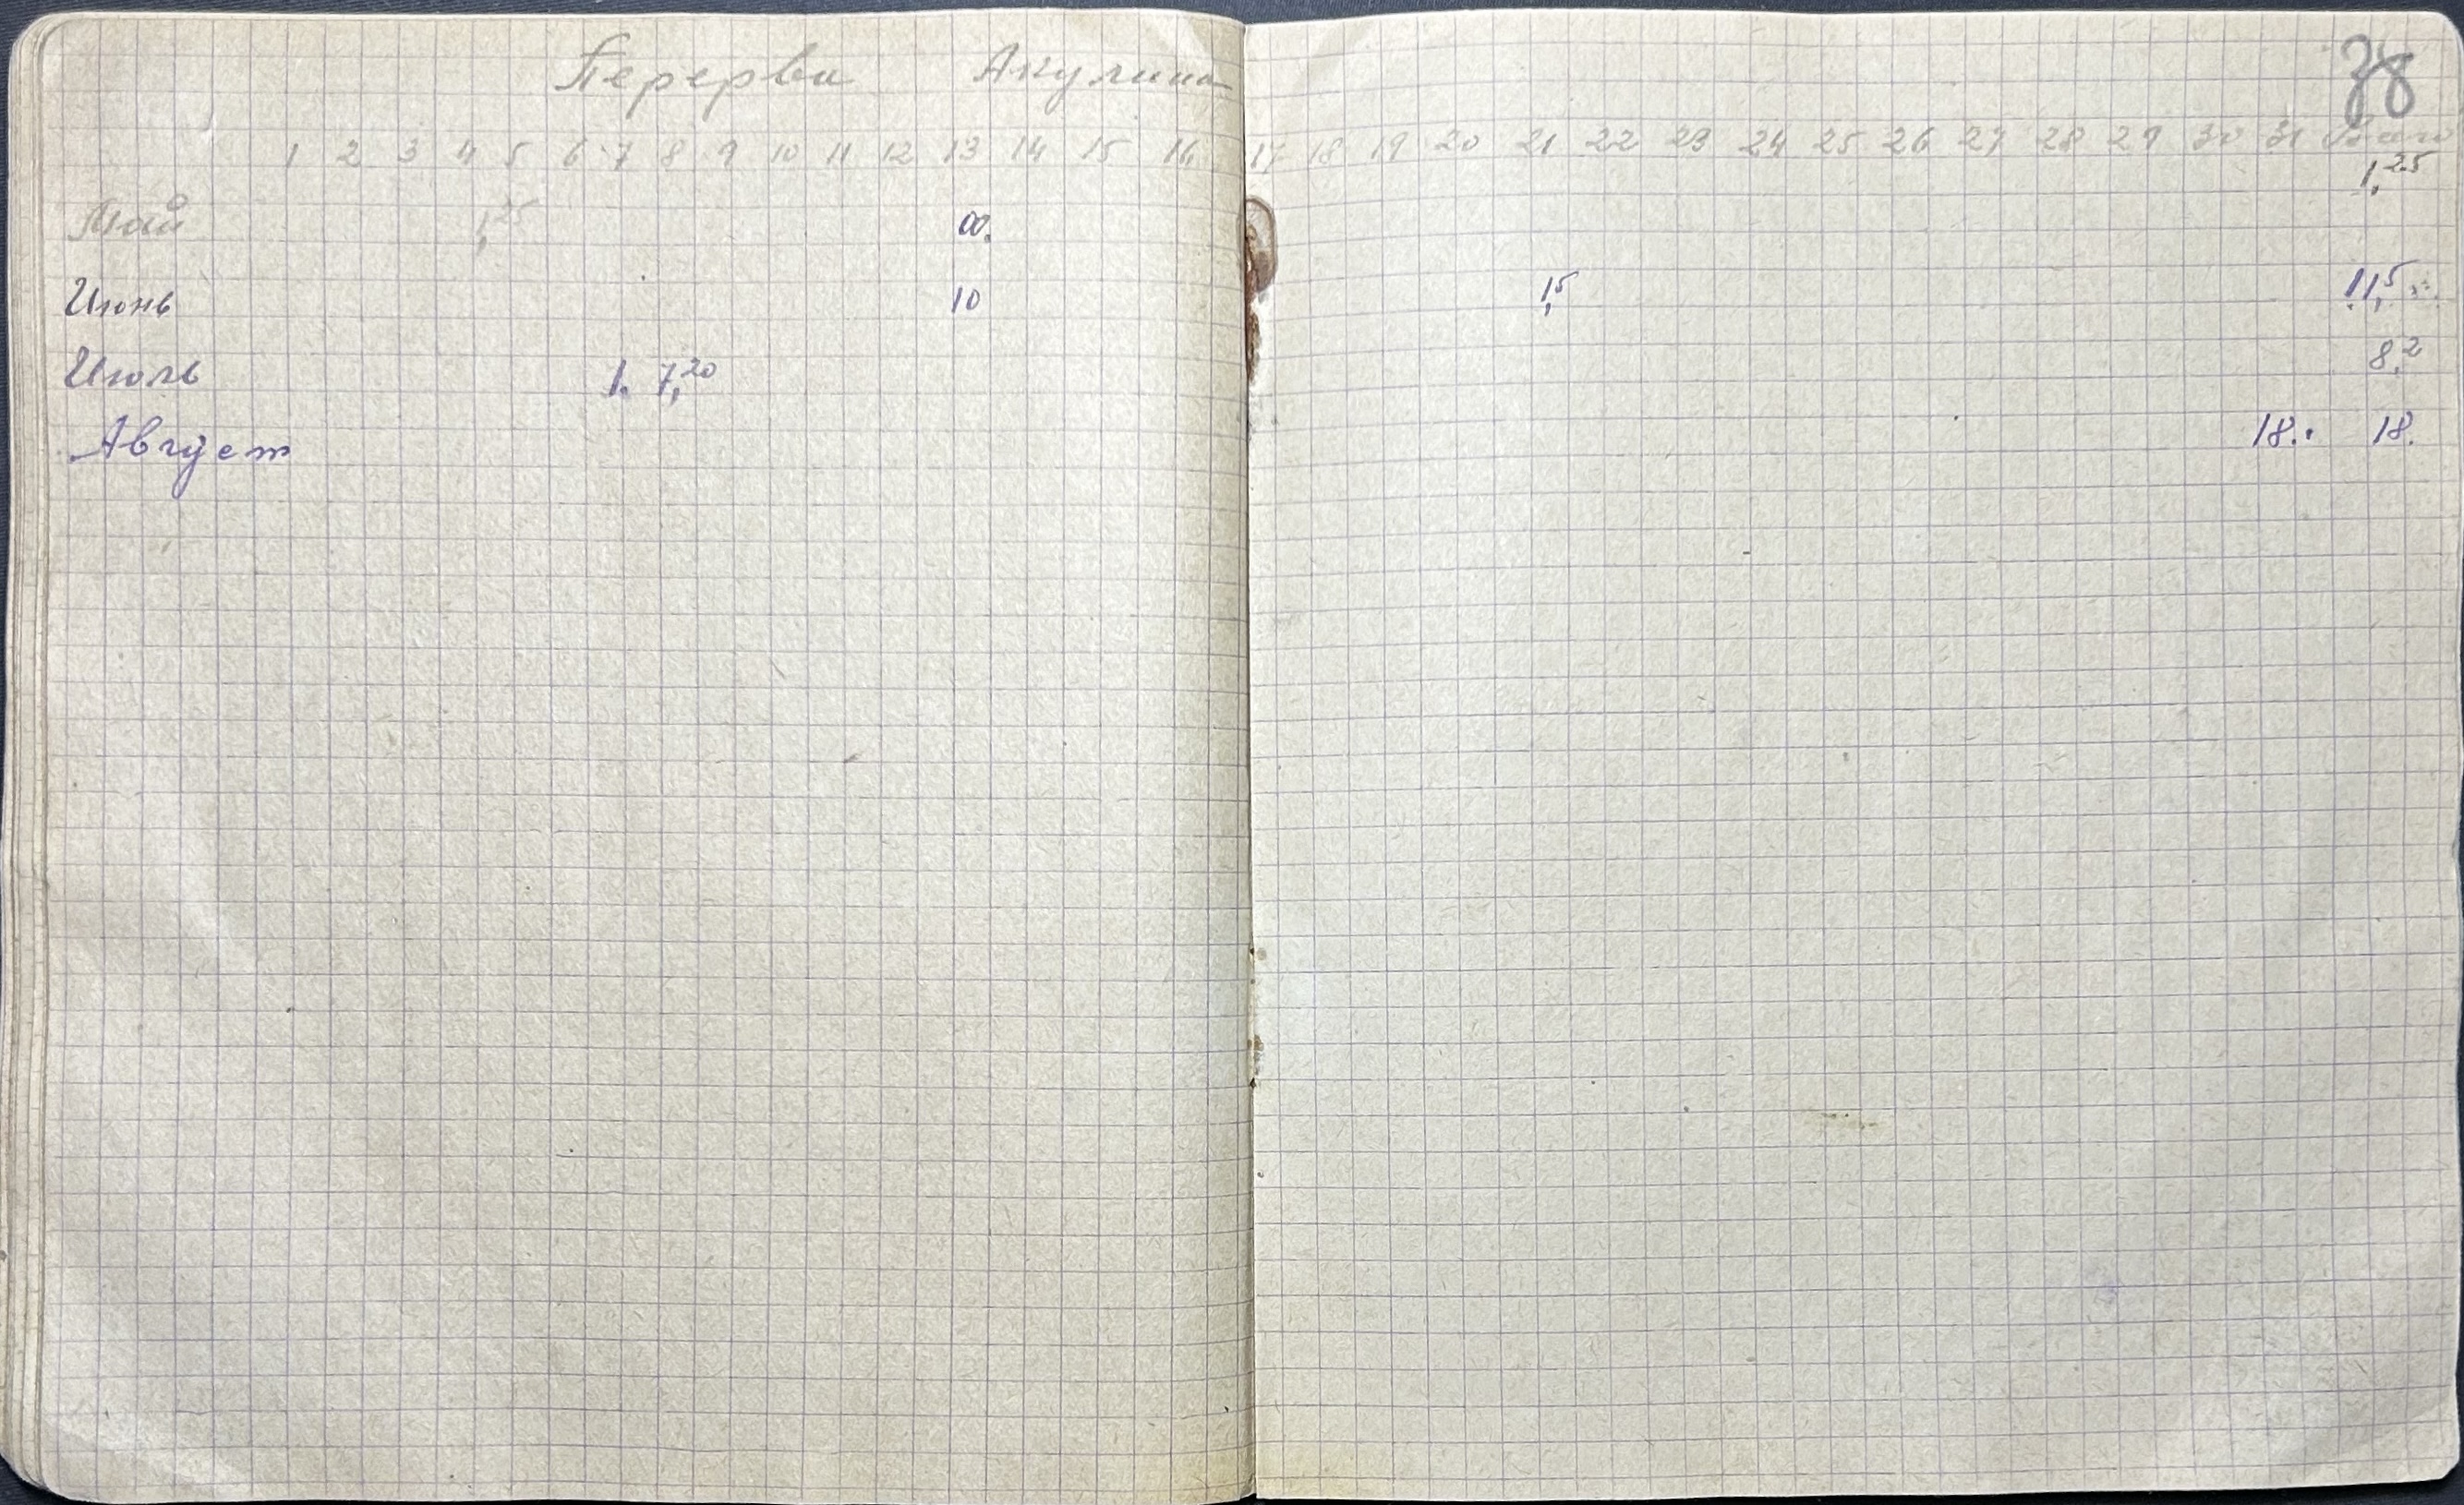 Перерва Акулина 38
1 2 3 4 5 6 7 8 9 10 11 12 13 14 15 16 17 18 19 20 21 22 23 24 25 26 27 28 29 30 31 Всего
1,25
Май 1,25 00.
Июнь 10 1,5 11,5
Июль 1. 7,20 8,2
Август 18. 18.